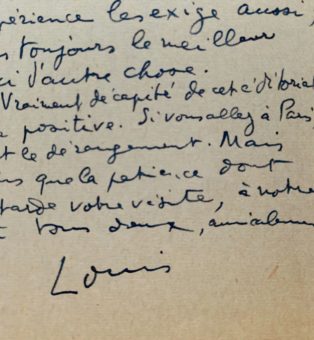 périence les exige aussi,
s toujours le meilleur
ci d'autre chose.
Vraiment décapité de cet éditorial
a positive. Si vous allez à Paris
t le dérangement. Mais
ns que la patience dont
tarde votre visite, à notre
t tous deux, amicalement
Louis